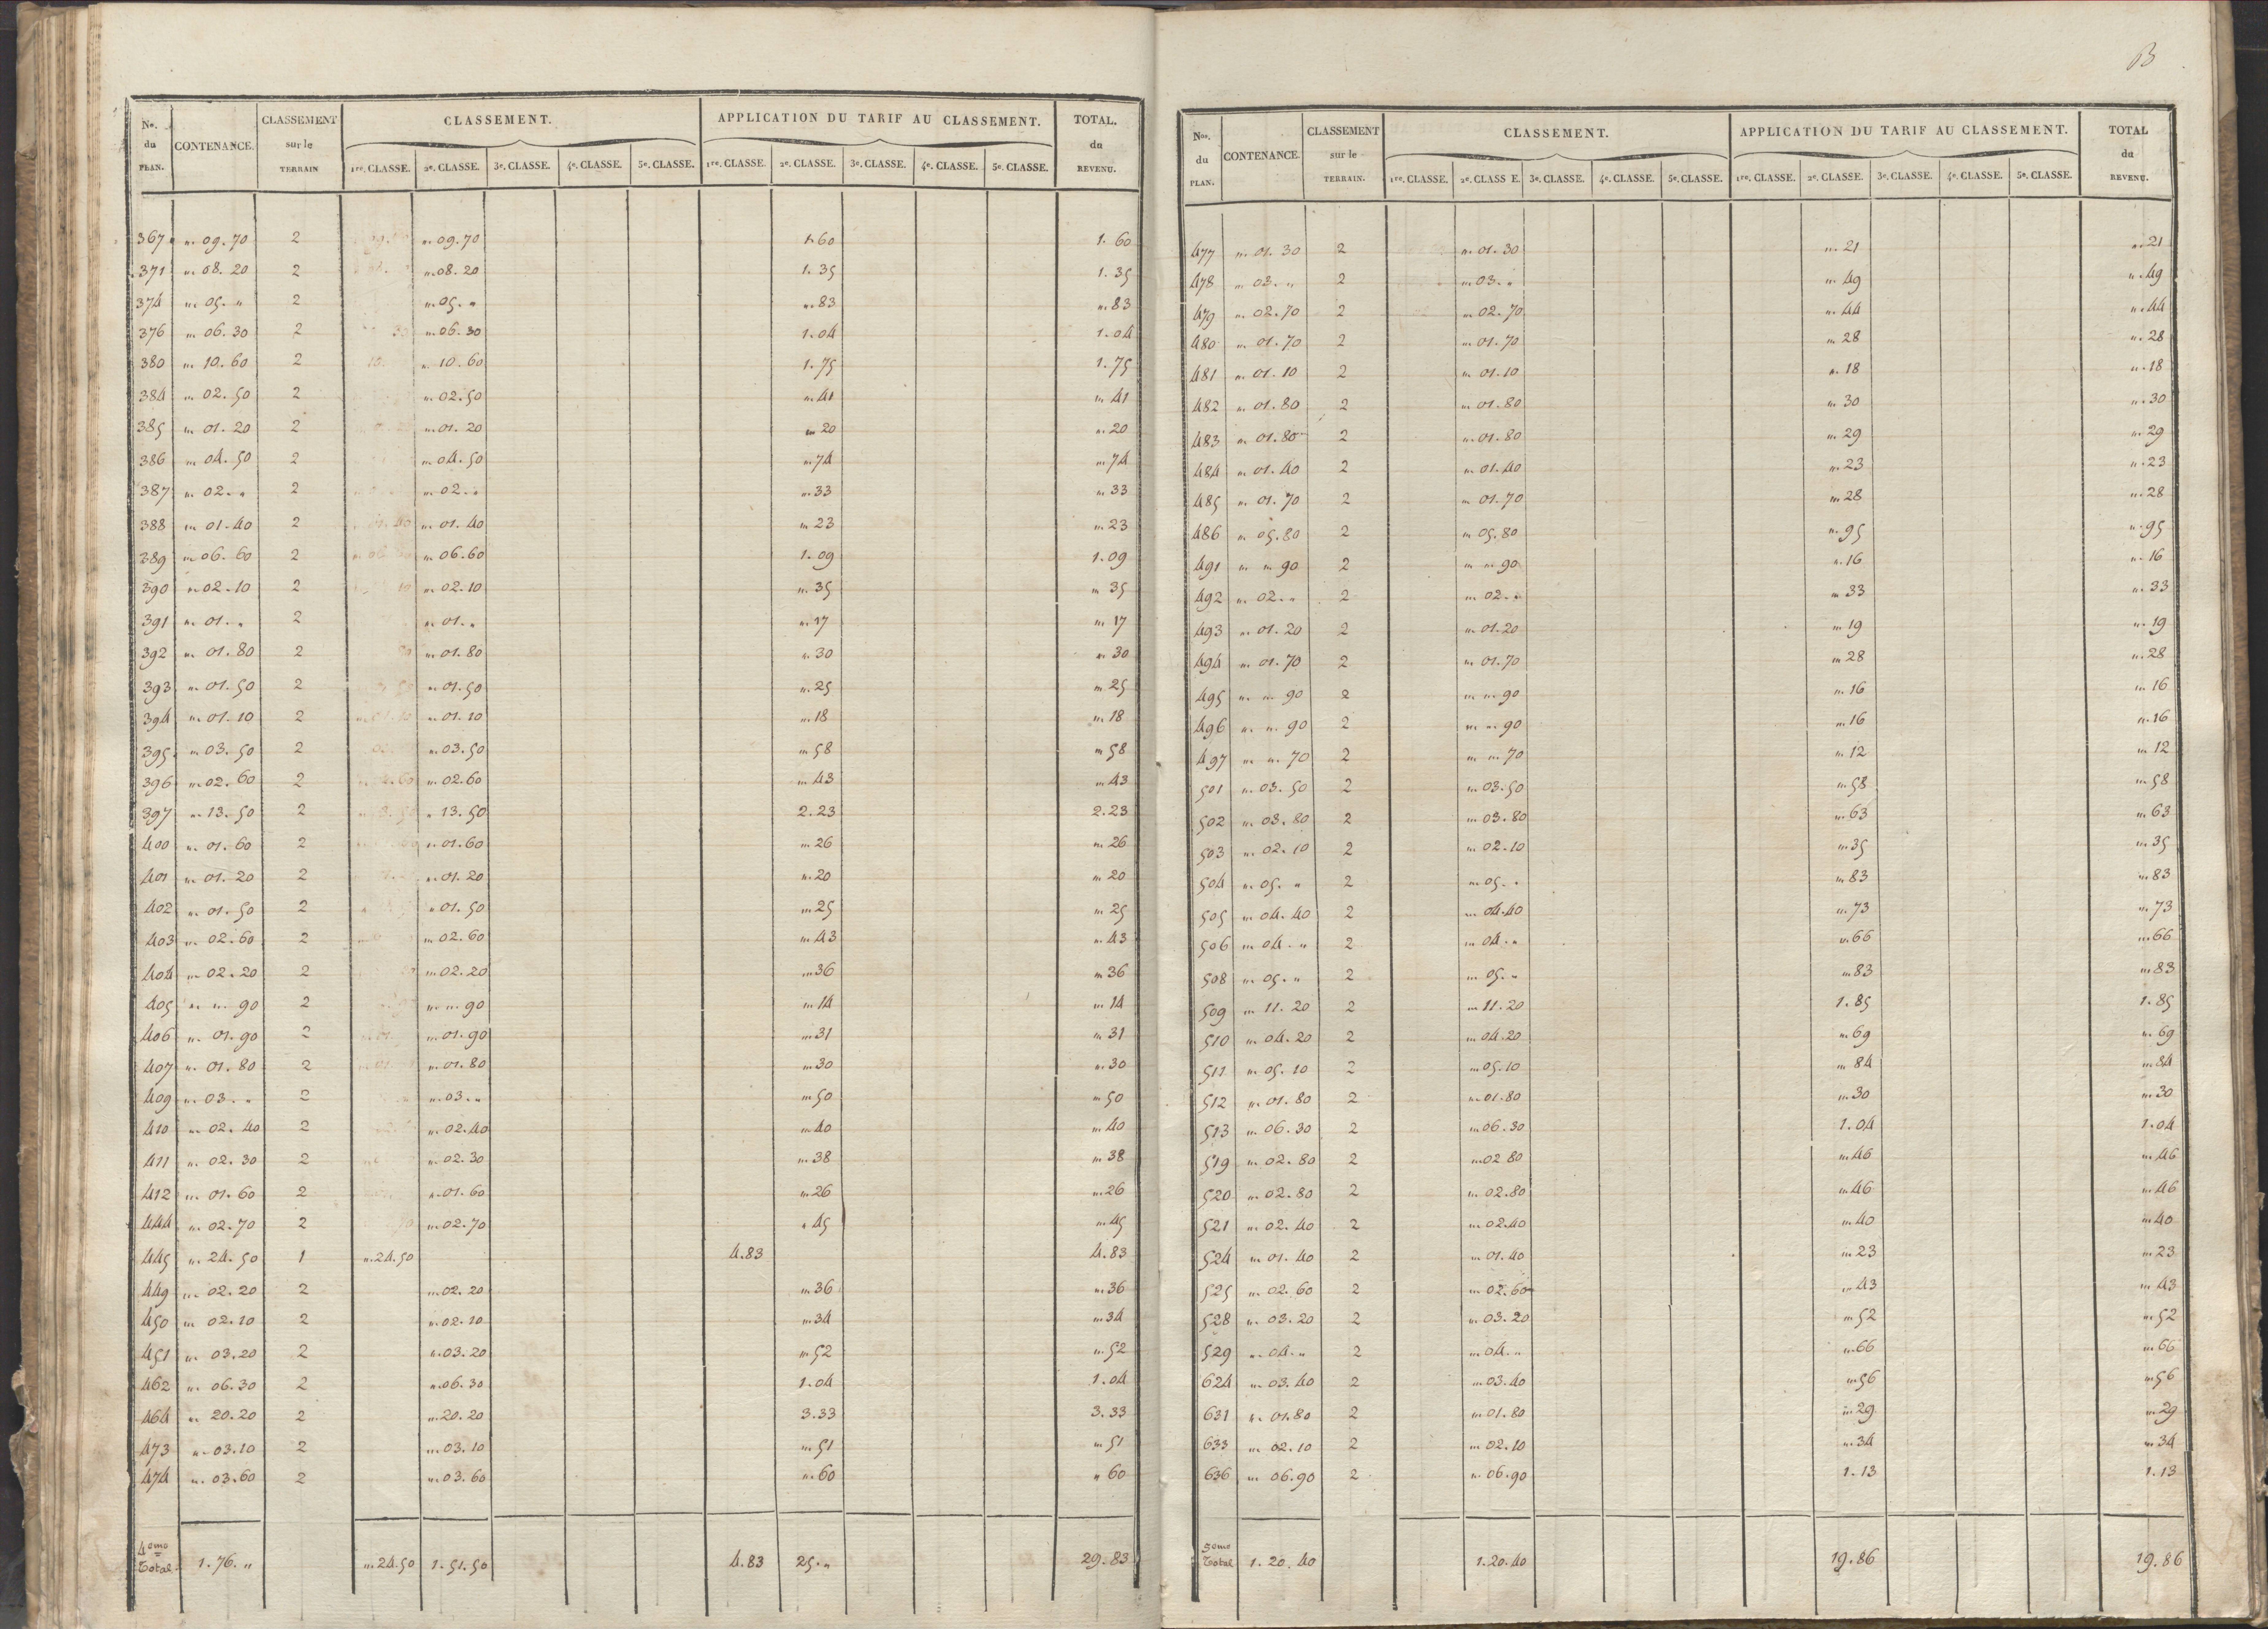 B
Nos. du PLAN. CONTENANCE. CLASSEMENT sur le TERRAIN CLASSEMENT. APPLICATION DU TARIF AU CLASSEMENT. TOTAL. du REVENU.
1re. CLASSE. 2e. CLASSE. 3e. CLASSE. 4e. CLASSE. 5e. CLASSE. 1re. CLASSE. 2e. CLASSE. 3e. CLASSE. 4e. CLASSE. 5e. CLASSE.
367 " 09.70 2 " 09.70 1.60 1.60
371 " 08.20 2 " 08.20 1.35 1.35
374 " 05. " 2 " 05. " " 83 " 83
376 " 06.30 2 " 06.30 1.04 1.04
380 " 10.60 2 " 10.60 1.75 1.75
384 " 02.50 2 " 02.50 " 41 " 41
385 " 01.20 2 " 01.20 " 20 " 20
386 " 04.50 2 " 04.50 " 74 " 74
387 " 02. " 2 " 02. " " 33 " 33
388 " 01.40 2 " 01.40 " 23 " 23
389 " 06.60 2 " 06.60 1.09 1.09
390 " 02.10 2 " 02.10 " 35 " 35
391 " 01. " 2 " 01. " " 17 " 17
392 " 01.80 2 " 01.80 " 30 " 30
393 " 01.50 2 " 01.50 " 25 " 25
394 " 01.10 2 " 01.10 " 18 " 18
395 " 03.50 2 " 03.50 " 58 " 58
396 " 02.60 2 " 02.60 " 43 " 43
397 " 13.50 2 " 13.50 2.23 2.23
400 " 01.60 2 " 01.60 " 26 " 26
401 " 01.20 2 " 01.20 " 20 " 20
402 " 01.50 2 " 01.50 " 25 " 25
403 " 02.60 2 " 02.60 " 43 " 43
404 " 02.20 2 " 02.20 " 36 " 36
405 " " 90 2 " " 90 " 14 " 14
406 " 01.90 2 " 01.90 " 31 " 31
407 " 01.80 2 " 01.80 " 30 " 30
409 " 03. " 2 " 03. " " 50 " 50
410 " 02.40 2 " 02.40 " 40 " 40
411 " 02.30 2 " 02.30 " 38 " 38
412 " 01.60 2 " 01.60 " 26 " 26
444 " 02.70 2 " 02.70 " 45 " 45
445 " 24.50 1 " 24.50 4.83 4.83
449 " 02.20 2 " 02.20 " 36 " 36
450 " 02.10 2 " 02.10 " 34 " 34
451 " 03.20 2 " 03.20 " 52 " 52
462 " 06.30 2 " 06.30 1.04 1.04
464 " 20.20 2 " 20.20 3.33 3.33
473 " 03.10 2 " 03.10 " 51 " 51
474 " 03.60 2 " 03.60 " 60 " 60
4eme Total 1.76. " " 24.50 1.51.50 4.83 25. " 29.83
Nos. du PLAN. CONTENANCE. CLASSEMENT sur le TERRAIN. CLASSEMENT. APPLICATION DU TARIF AU CLASSEMENT. TOTAL du REVENU.
1re. CLASSE. 2e. CLASS E. 3e. CLASSE. 4e. CLASSE. 5e. CLASSE. 1re. CLASSE. 2e. CLASSE. 3e. CLASSE. 4e. CLASSE. 5e. CLASSE.
477 " 01.30 2 " 01.30 " 21 " 21
478 " 03. " 2 " 03. " " 49 " 49
479 " 02.70 2 " 02.70 " 44 " 44
480 " 01.70 2 " 01.70 " 28 " 28
481 " 01.10 2 " 01.10 " 18 " 18
482 " 01.80 2 " 01.80 " 30 " 30
483 " 01.80 2 " 01.80 " 29 " 29
484 " 01.40 2 " 01.40 " 23 " 23
485 " 01.70 2 " 01.70 " 28 " 28
486 " 05.80 2 " 05.80 " 95 " 95
491 " " 90 2 " " 90 " 16 " 16
492 " 02. " 2 " 02. " " 33 " 33
493 " 01.20 2 " 01.20 " 19 " 19
494 " 01.70 2 " 01.70 " 28 " 28
495 " " 90 2 " " 90 " 16 " 16
496 " " 90 2 " " 90 " 16 " 16
497 " " 70 2 " " 70 " 12 " 12
501 " 03.50 2 " 03.50 " 58 " 58
502 " 03.80 2 " 03.80 " 63 " 63
503 " 02.10 2 " 02.10 " 35 " 35
504 " 05. " 2 " 05. " " 83 " 83
505 " 04.40 2 " 04.40 " 73 " 73
506 " 04. " 2 " 04. " " 66 " 66
508 " 05. " 2 " 05. " " 83 " 83
509 " 11.20 2 " 11.20 1.85 1.85
510 " 04.20 2 " 04.20 " 69 " 69
511 " 05.10 2 " 05.10 " 84 " 84
512 " 01.80 2 " 01.80 " 30 " 30
513 " 06.30 2 " 06.30 1.04 1.04
519 " 02.80 2 " 02 80 " 46 " 46
520 " 02.80 2 " 02.80 " 46 " 46
521 " 02.40 2 " 02.40 " 40 " 40
524 " 01.40 2 " 01.40 " 23 " 23
525 " 02.60 2 " 02.60 " 43 " 43
528 " 03.20 2 " 03.20 " 52 " 52
529 " 04. " 2 " 04. " " 66 " 66
624 " 03.40 2 " 03.40 " 56 " 56
631 " 01.80 2 " 01.80 " 29 " 29
633 " 02.10 2 " 02.10 " 34 " 34
636 " 06.90 2 " 06.90 1.13 1.13
5eme Total 1.20.40 1.20.40 19.86 19.86